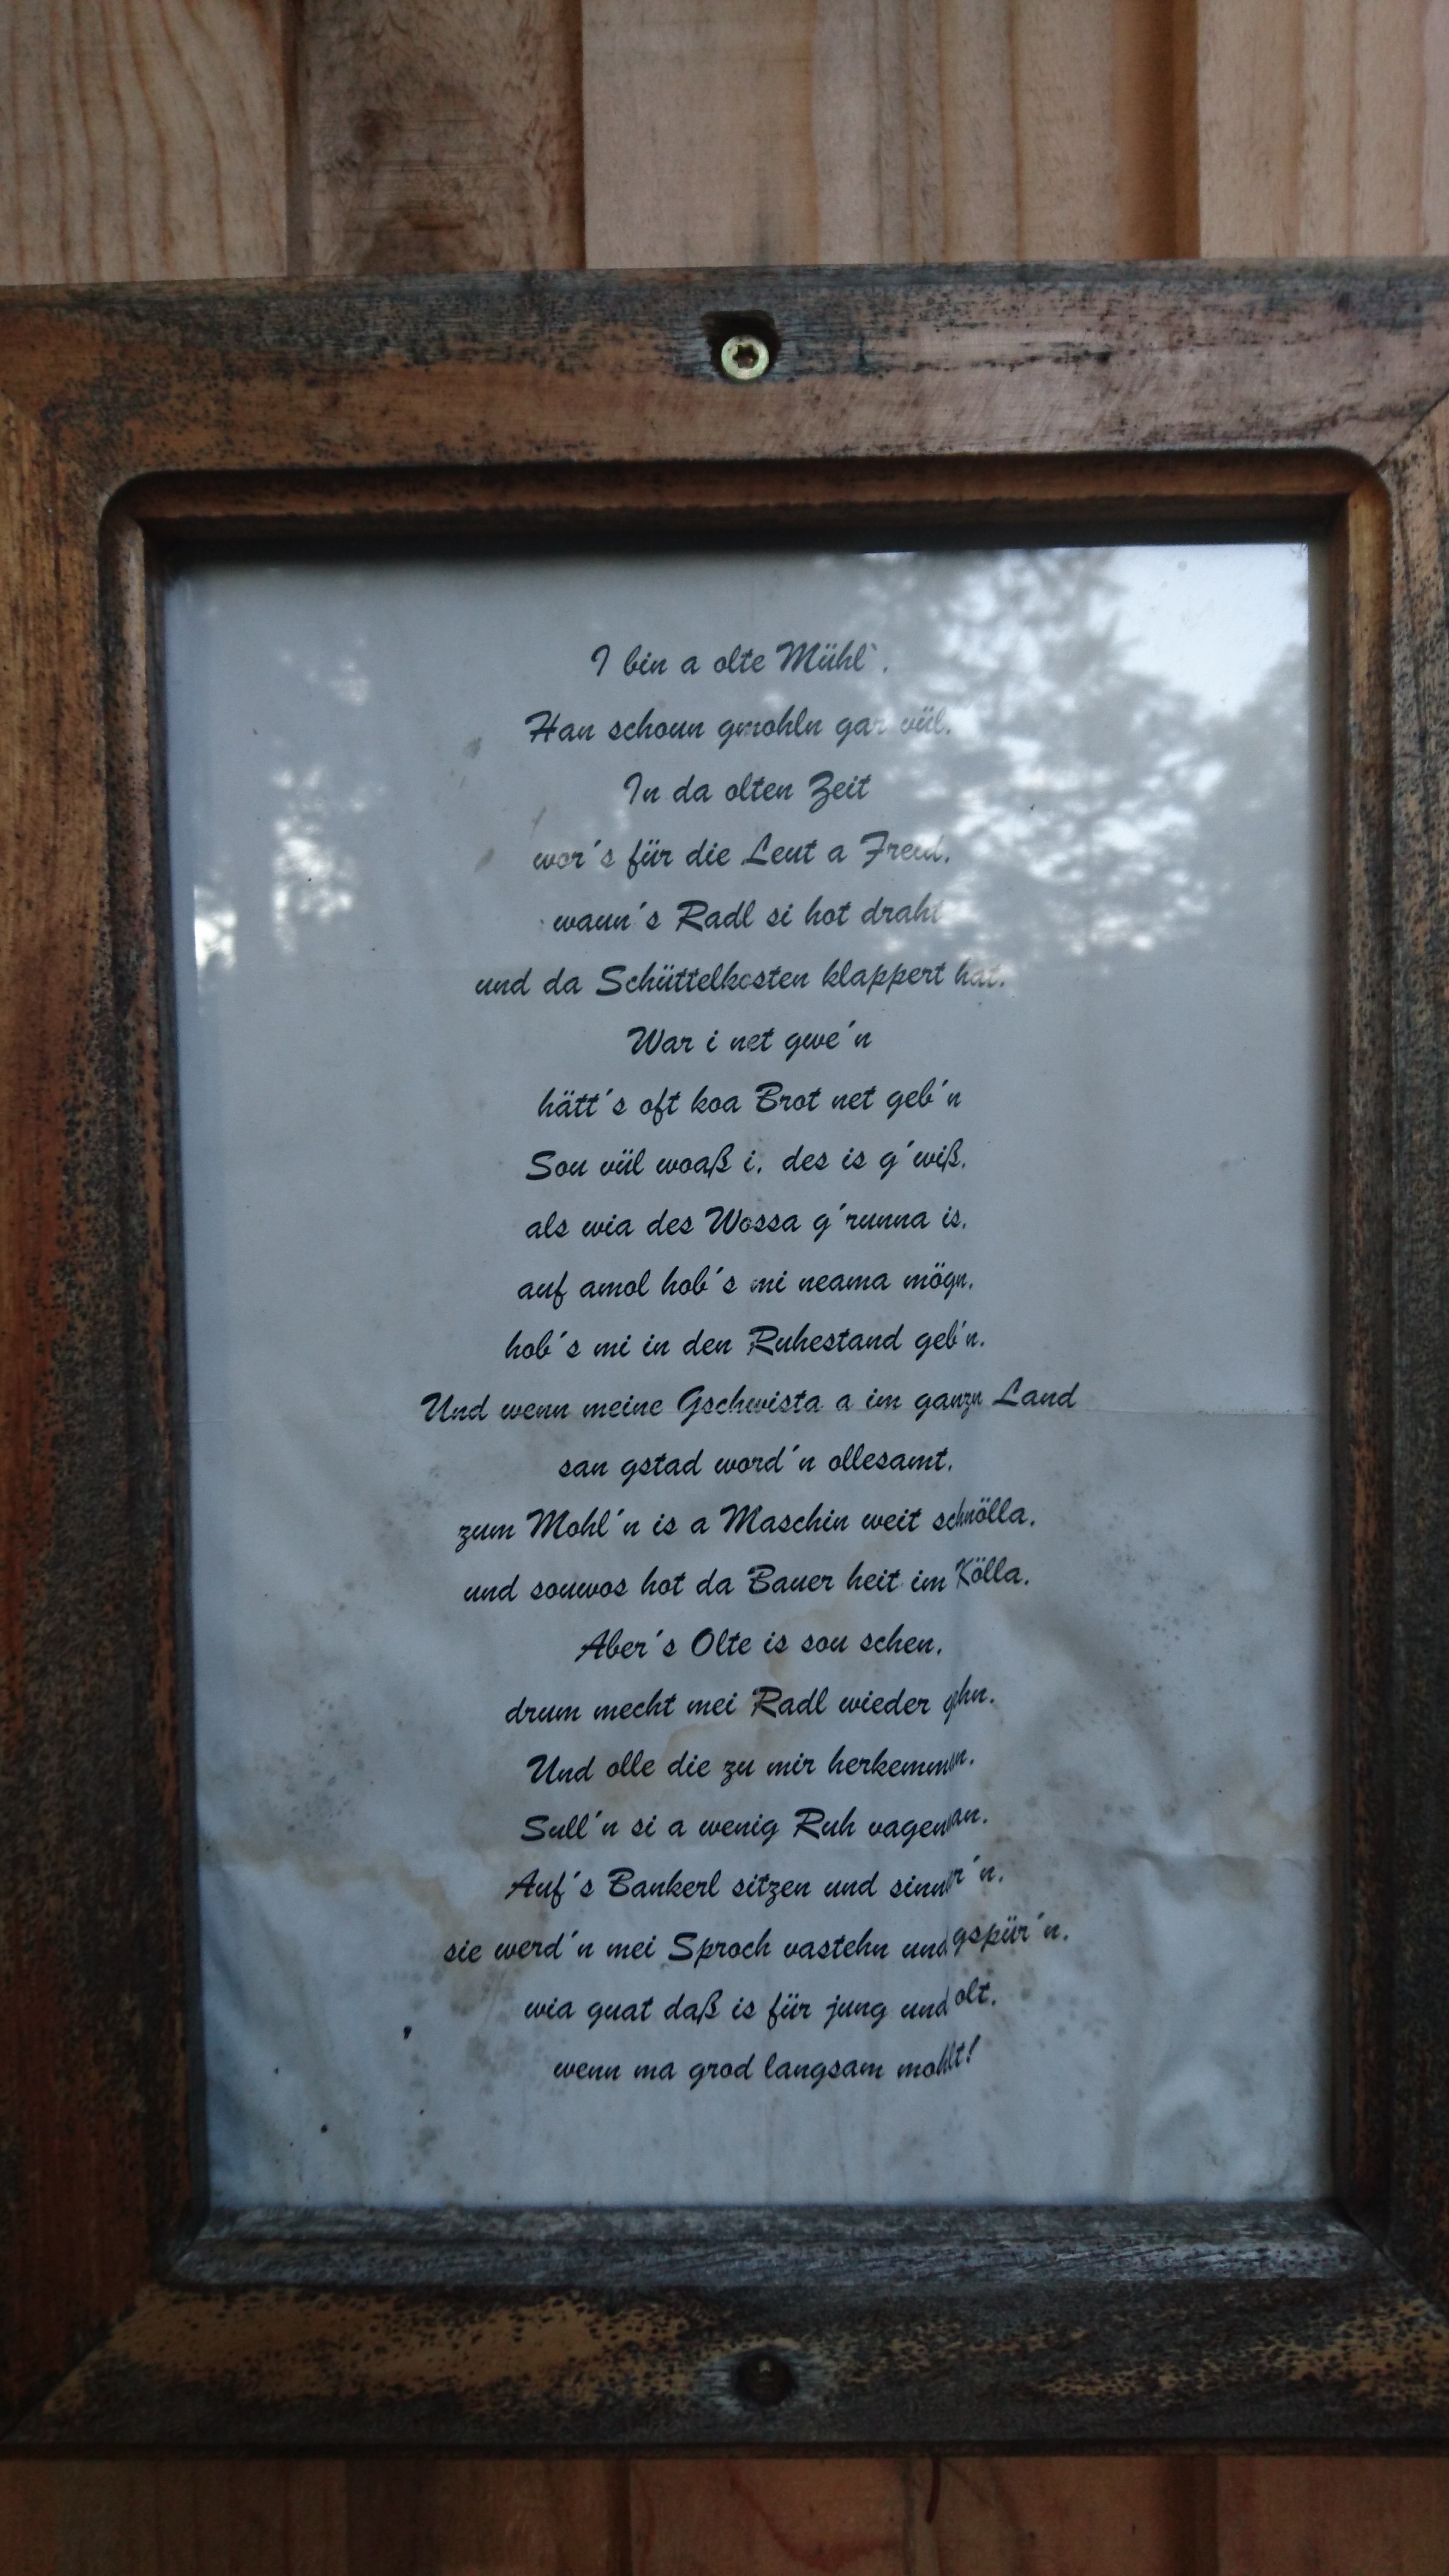 I bin a olte Mühl`.
Han schoun gmohln gar vül.
In da olten Zeit
wor´s für die Leut a Freud,
waun´s Radl si hot draht
und da Schüttelkosten klappert hat.
War i net gwe´n
hätt´s oft koa Brot net geb´n
Sou vül woaß i, des is g´wiß,
als wia des Wossa g´runna is,
auf amol hob´s mi neama mögn,
hob´s mi in den Ruhestand geb´n.
Und wenn meine Gschwista a im ganzn Land
san gstad word´n ollesamt,
zum Mohl´n is a Maschin weit schnölla,
und souwos hot da Bauer heit im Kölla.
Aber´s Olte is sou schen,
drum mecht mei Radl wieder gehn.
Und olle die zu mir herkemman,
Sull´n si a wenig Ruh vagennan.
Auf´s Bankerl sitzen und sinnier´n,
sie werd´n mei Sproch vastehn und gspür´n,
wia guat daß is für jung und olt,
wenn ma grod langsam mohlt!